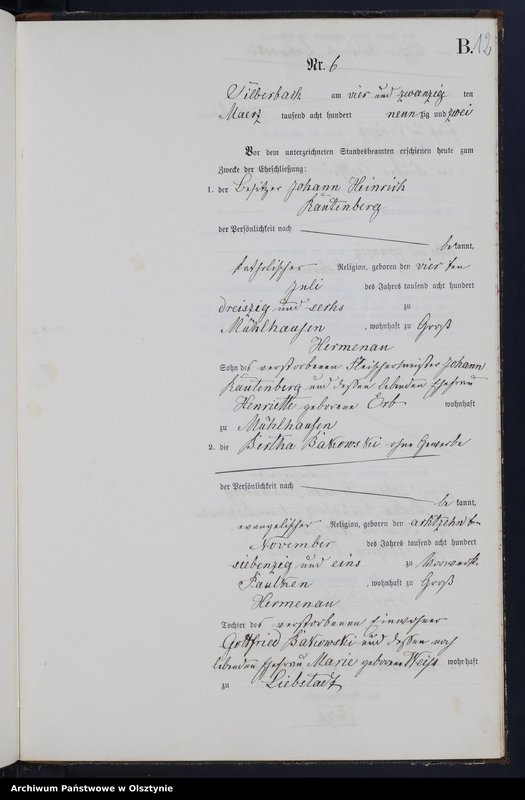 B. 12
Nr. 6
Silberbach am vier und zwanzig ten
Maerz tausend acht hundert neun zig und zwei
Vor dem unterzeichneten Standesbeamten erschienen heute zum
Zwecke der Eheschließung:
1. der Besitzer Johann Heinrich
Rautenberg
der Persönlichkeit nach
be kannt,
katholischer Religion, geboren den vier ten
Juli des Jahres tausend acht hundert
dreiszig und sechs zu
Mühlhausen, wohnhaft zu Groß
Hermenau
Sohn des verstorbenen Fleischermeister Johann
Rautenberg und dessen lebenden Ehefrau
Henriette geborene Erb wohnhaft
zu Mühlhausen
2. die Bertha Bakowski ohne Gewerbe
der Persönlichkeit nach
be kannt,
evangelischer Religion, geboren den achtzehn ten
November des Jahres tausend acht hundert
siebenzig und eins zu Vorwerk
, wohnhaft zu Groß
Hermenau
Tochter des verstorbenen Einwohner
Gottfried Bakowski und dessen noch
lebenden Ehefrau Marie geborene Weiß wohnhaft
zu Liebstadt
Archiwum Państwowe w Olsztynie